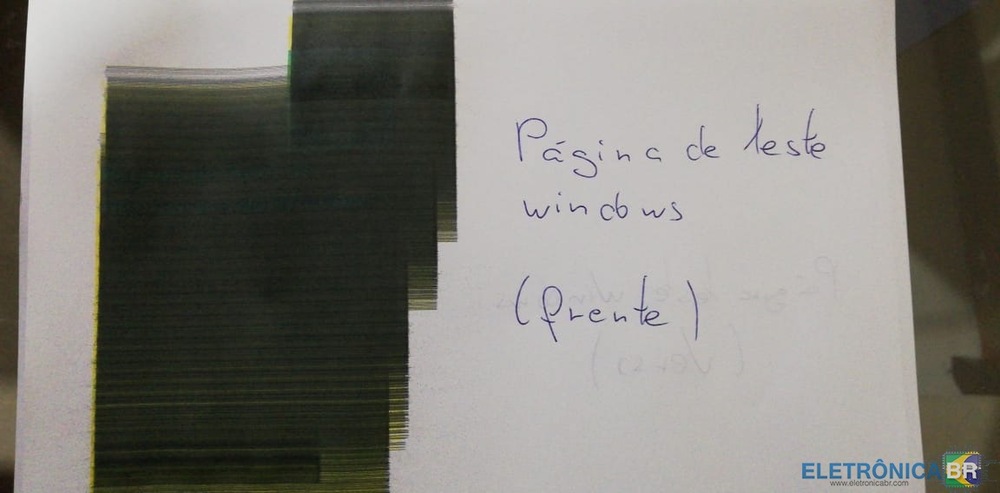 Página de teste
windows
(frente)
ELETRÔNICA BR
www.eletronicabr.com